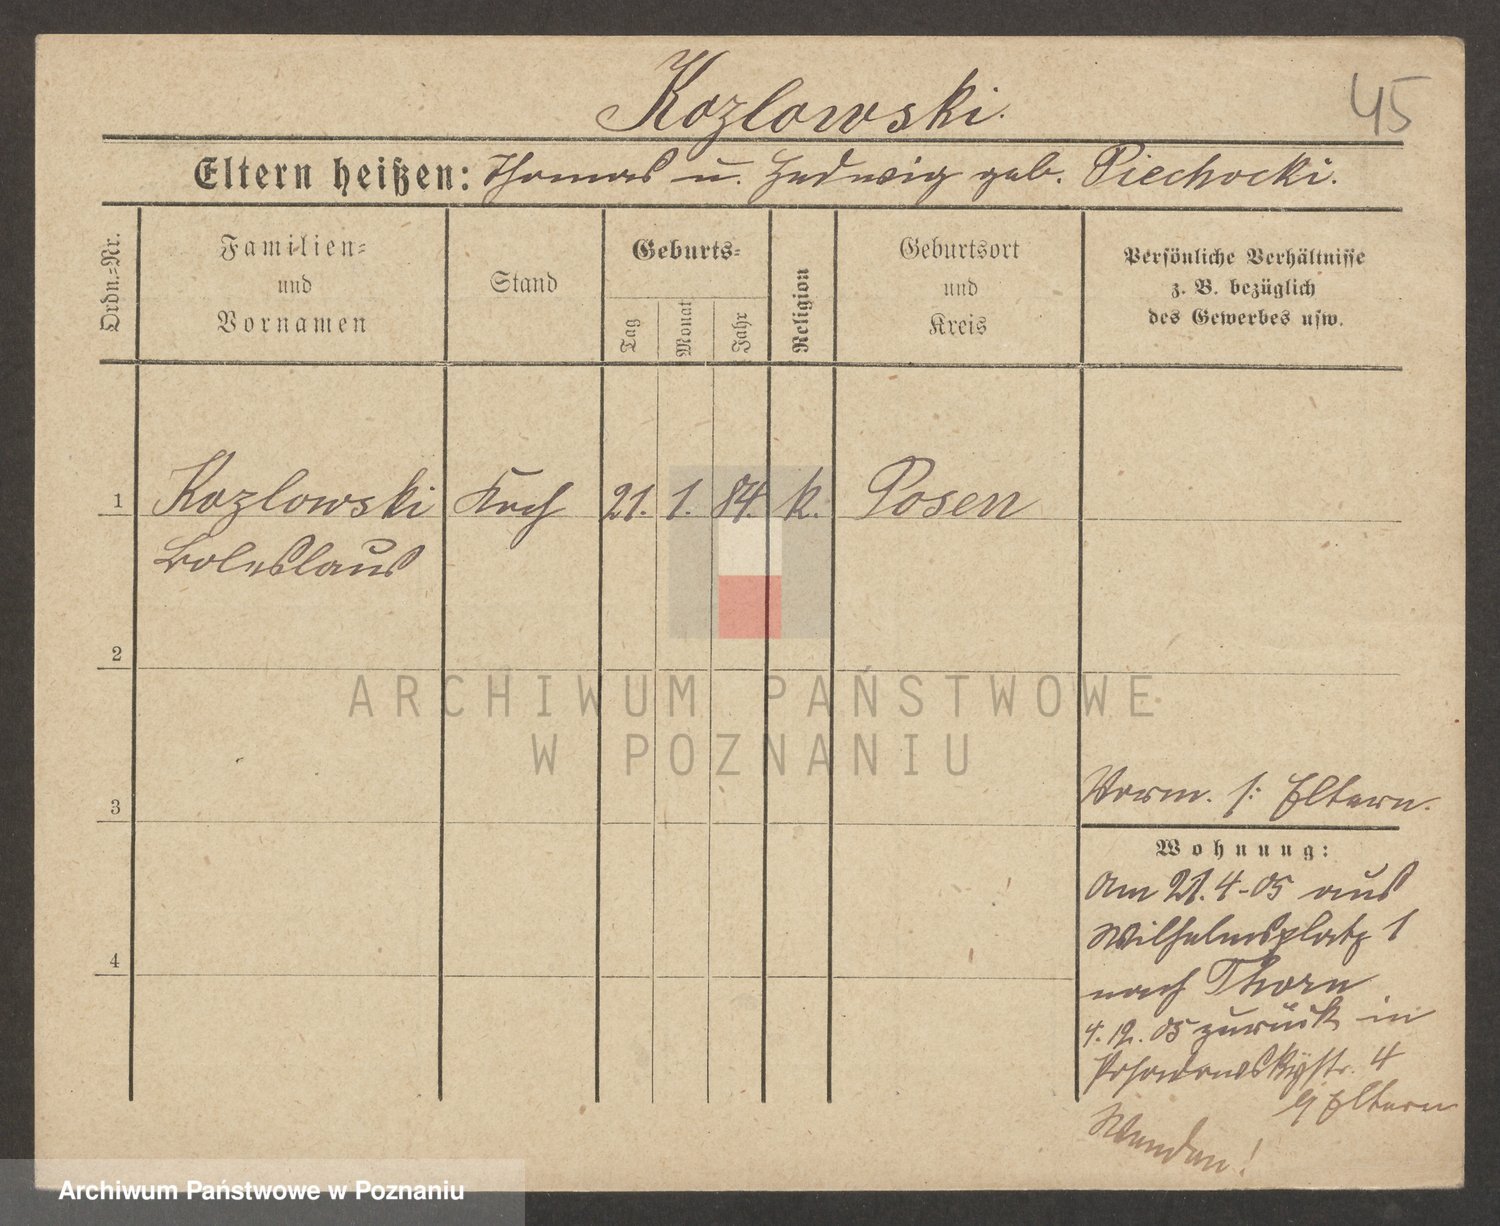 Kozlowski.
45
Eltern heißen: Thomas u. Hedwig geb. Piechocki.
Ordn.=Nr.
Familien=
und
Vornamen
Stand
Geburts=
Tag
Monat
Jahr
Religion
Geburtsort
und
Kreis
Persönliche Verhältnisse
z. B. bezüglich
des Gewerbes usw.
1 Kozlowski 21. 1. 84. k. Posen
Boleslaus
2
ARCHIWUM PAŃSTWOWE
W POZNANIU
3
Vorm. s: Eltern.
Wohnung:
Am 21.4-05 aus
Wilhelmsplatz 1
4
nach Thorn
4. 12. 05 zurück in
Posadowskystr. 4
b/ Eltern
Wenden!
Archiwum Państwowe w Poznaniu